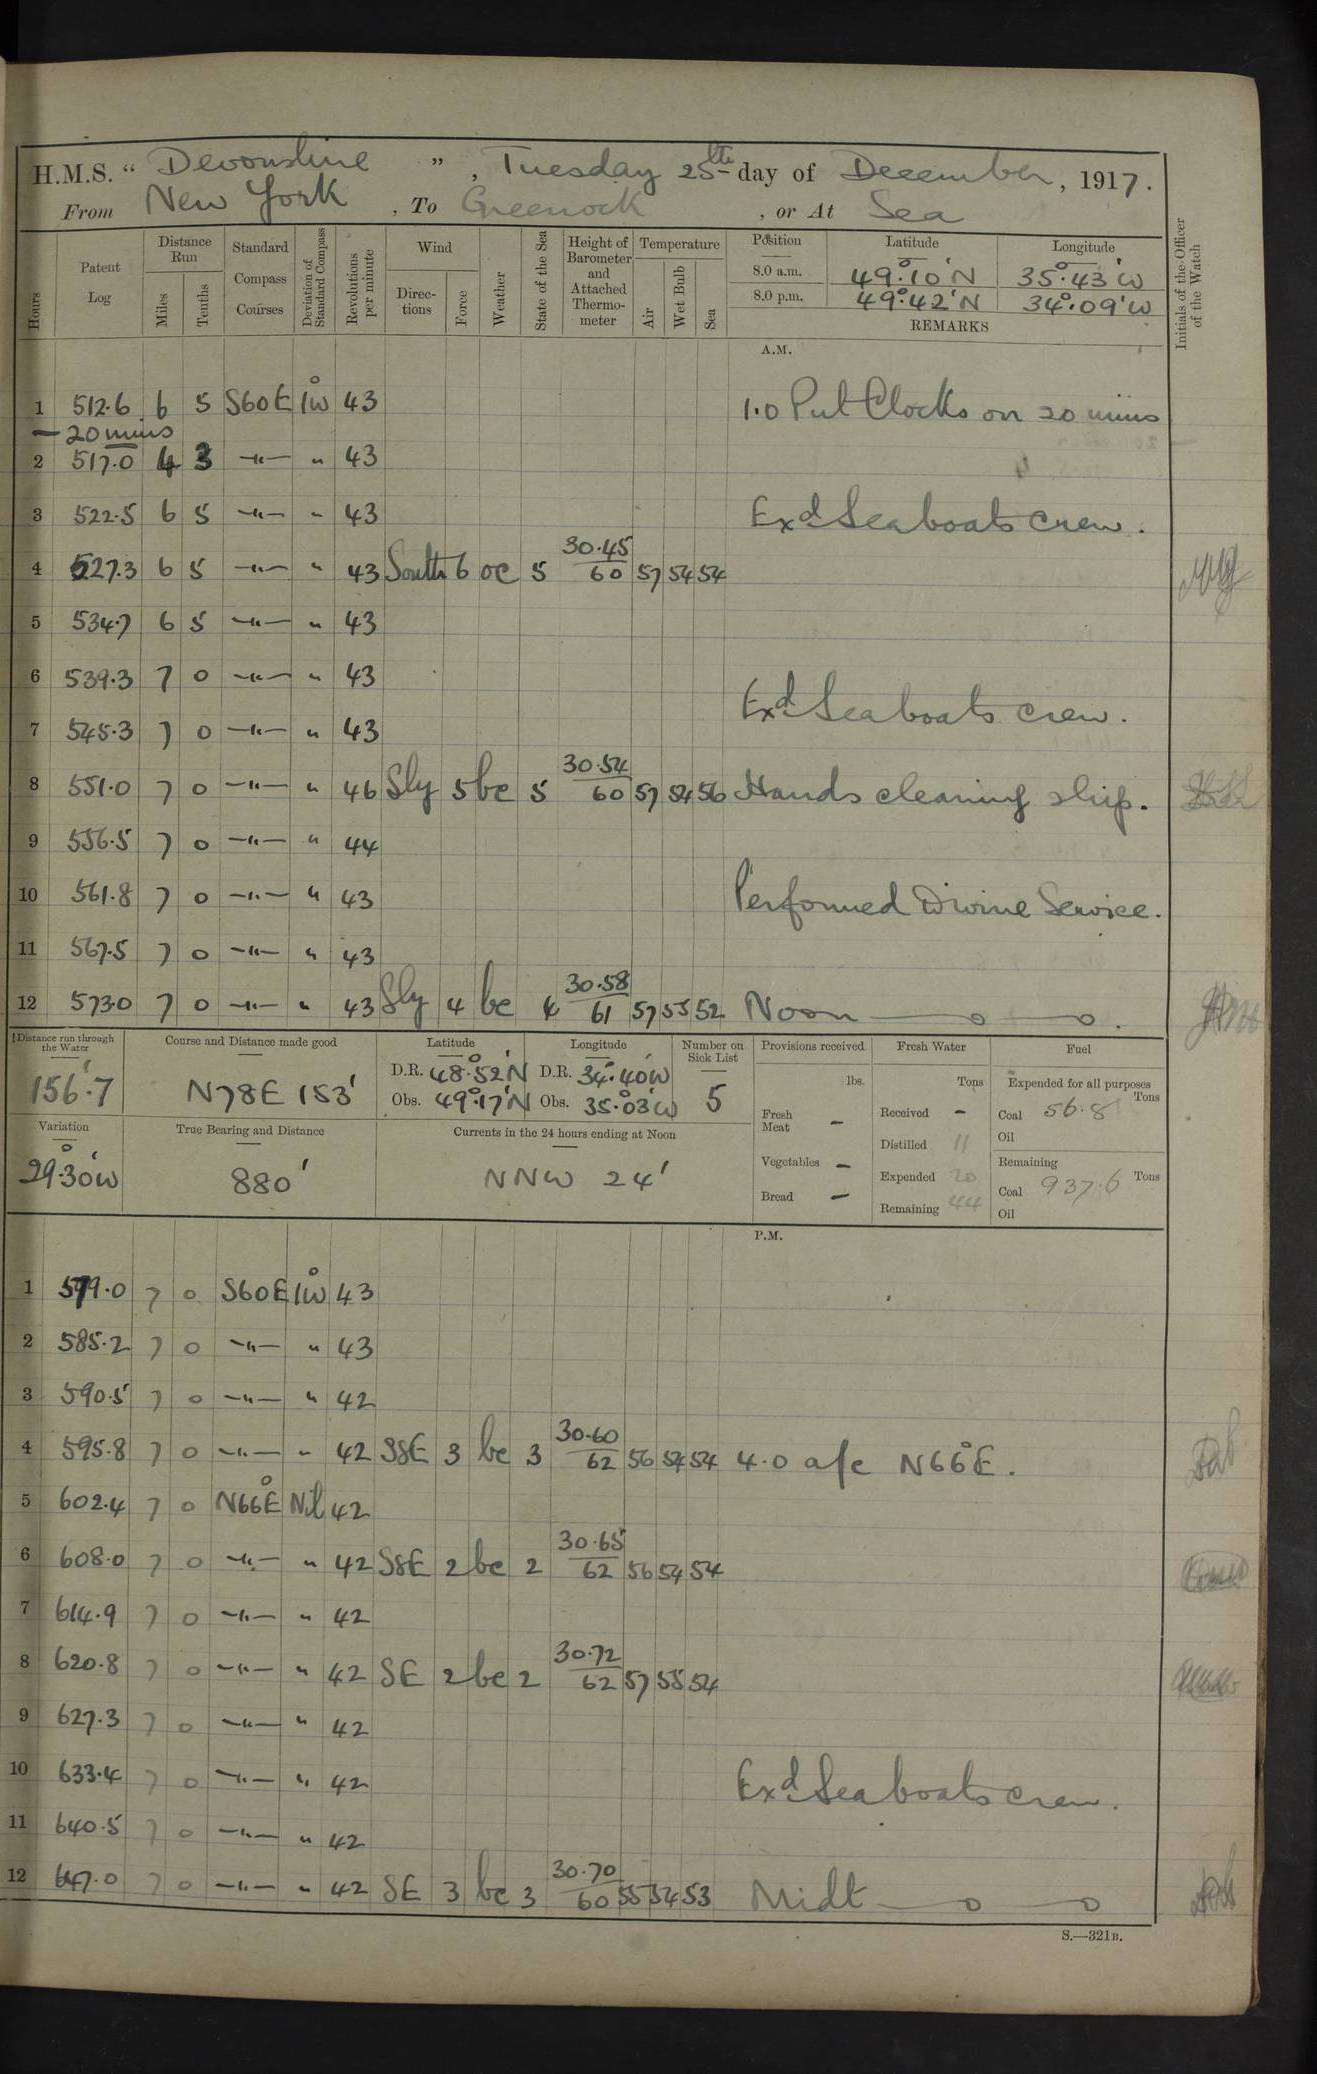 H.M.S. “ Devonshire ” , Tuesday 25th day of December , 1917.
From New York , To Greenock , or At Sea
Hours
Patent Log
Distance Run
Miles
Tenths
Standard Compass Courses
Deviation of Standard Compass
Revolutions per minute
Wind
Directions
Force
Weather
State of the Sea
Height of Barometer and Attached Thermometer
Temperature
Air
Wet Bulb
Sea
Position Latitude Longitude
8.0 a.m. 49°.10'N 35°.43'W
8.0 p.m. 49°.42'N 34°.09'W
REMARKS
Initials of the Officer of the Watch
A.M.
1 512.6 6 5 S60E 1°W 43 1.0 Put Clocks on 20 mins
— 20 mins
2 517.0 4 3 —"— " 43
3 522.5 6 5 —"— " 43 Exd Seaboats crew.
4 527.3 6 5 —"— " 43 South 6 oc 5 30.45 60 57 54 54
5 534.7 6 5 —"— " 43
6 539.3 7 0 —"— " 43
Exd Seaboats crew.
7 545.3 7 0 —"— " 43
8 551.0 7 0 —"— " 46 Sly 5 bc 5 30.54 60 57 54 56 Hands cleaning ship.
9 556.5 7 0 —"— " 44
10 561.8 7 0 —"— " 43 Performed Divine Service.
11 567.5 7 0 —"— " 43
12 573.0 7 0 —"— " 43 Sly 4 bc 4 30.58 61 57 55 52 Noon —o—o.
Distance run through the Water
156'.7
Course and Distance made good
N78E 153'
Latitude
D.R. 48°.52'N
Obs. 49°.17'N
Longitude
D.R. 34°.40'W
Obs. 35°.03'W
Number on Sick List
5
Provisions received
lbs.
Fresh Meat —
Vegetables —
Bread —
Fresh Water
Tons
Received —
Distilled 11
Expended 20
Remaining 44
Fuel
Expended for all purposes
Tons
Coal 56.8
Oil
Remaining
Coal 937.6 Tons
Oil
Variation
29°.30'W
True Bearing and Distance
880'
Currents in the 24 hours ending at Noon
NNW 24'
P.M.
1 579.0 7 0 S60E 1°W 43
2 585.2 7 0 —"— " 43
3 590.5 7 0 —"— " 42
4 595.8 7 0 —"— " 42 SSE 3 bc 3 30.60 62 56 54 54 4.0 a/c N66°E.
5 602.4 7 0 N66°E Nil 42
6 608.0 7 0 —"— " 42 SSE 2 bc 2 30.65 62 56 54 54
7 614.9 7 0 —"— " 42
8 620.8 7 0 —"— " 42 SE 2 bc 2 30.72 62 57 55 54
9 627.3 7 0 —"— " 42
10 633.4 7 0 —"— " 42 Exd Seaboats crew.
11 640.5 7 0 —"— " 42
12 647.0 7 0 —"— " 42 SE 3 bc 3 30.70 60 55 54 53 Midt —o—o
S.—321B.